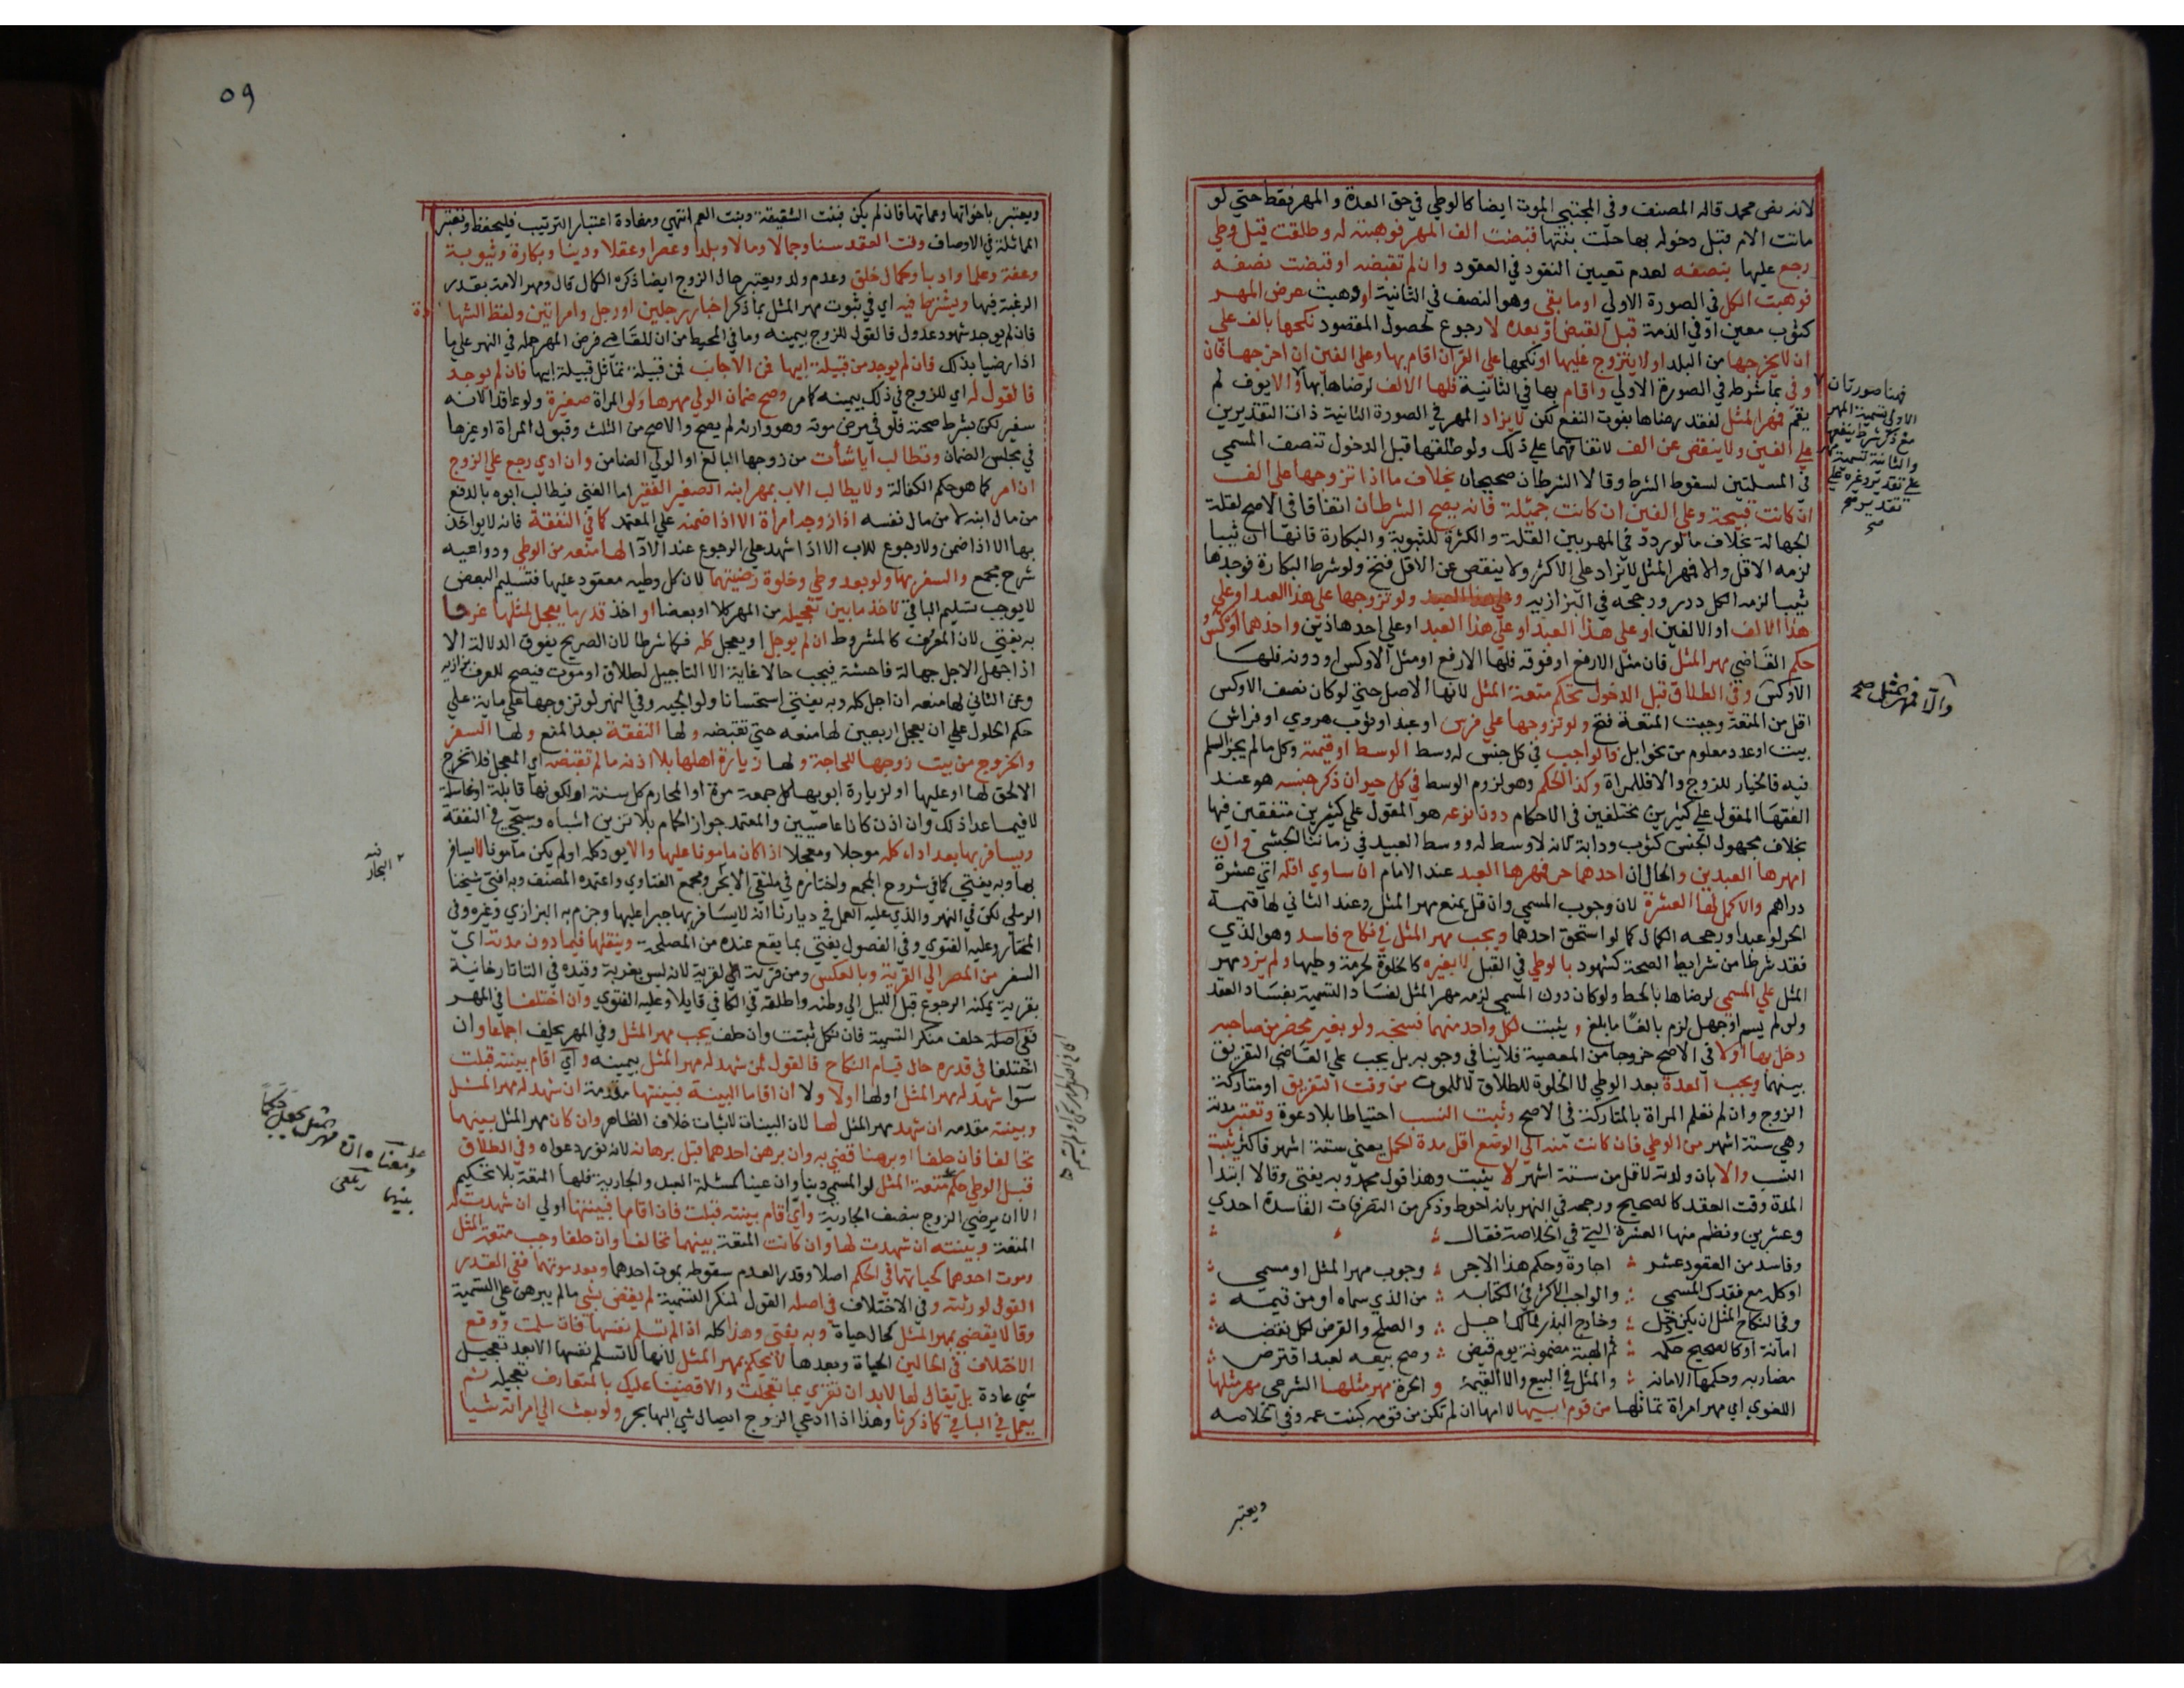 لانه نص محمد قاله المصنف وفي المجتبى الموت ايضا كالوطي في حق العدة والمهر فقط حتي لو
ماتت الام قبل دخوله بها حلت بنتها قبضت الف المهر فوهبته له وطلقت قبل وطي
رجع عليها بنصفه لعدم تعيين النقود في العقود وان لم تقبضه او قبضت نصفه
فوهبت الكل في الصورة الاولي او ما بقي وهو النصف في الثانية او وهبت عرض المهر
كثوب معين او في الذمة قبل القبض او بعده لا رجوع لحصول المقصود نكحها بالف علي
ان لا يخرجها من البلد او لا يتزوج عليها او نكحها علي الف ان اقام بها وعلي الفين ان اخرجها فان
وفي بما شرط في الصورة الاولي واقام بها في الثانية فلها الالف لرضاها بها والا يوف لم
يقم فمهر المثل لفقد رضاها بفوت النفع لكن لا يزاد المهر في الصورة الثانية ذات التقديرين
علي الفين ولا ينقص عن الف لاتفاقهما علي ذلك ولو طلقها قبل الدخول تنصف المسمي
في المسلتين لسقوط الشرط وقالا الشرطان صحيحان بخلاف ما اذا تزوجها علي الف
ان كانت قبيحة وعلي الفين ان كانت جميلة فانه يصح الشرطان اتفاقا في الاصح لقلة
الجهالة بخلاف ما لو ردد في المهر بين القلة والكثرة للثيوبة والبكارة فانها ان ثيبا
لزمه الاقل والا فمهر المثل لا يزاد علي الاكثر ولا ينقص عن الاقل فتح ولو شرط البكارة فوجدها
ثيبا لزمه الكل درر ورجحه في البزازيه ولو تزوجها علي هذا العبد او علي
هذا الالف او الالفين او علي هذا العبد او علي هذا العبد او علي احد هذين واحدهما اوكس
حكم القاضي مهر المثل فان مثل الارفع او فوقه فلها الارفع او مثل الاوكس او دونه فلها
الاوكس وفي الطلاق قبل الدخول تحكم متعة المثل لانها الاصل حتي لو كان نصف الاوكس
اقل من المتعة وجبت المتعة فتح ولو تزوجها علي فرس او عبد او ثوب هروي او فراش
بيت او عدد معلوم من نحو ابل فالواجب في كل جنس له وسط الوسط او قيمته وكل ما لم يجز السلم
فيه فالخيار للزوج والا فللمراة وكذا الحكم وهو لزوم الوسط في كل حيوان ذكر جنسه هو عند
الفقها المقول علي كثيرين مختلفين في الاحكام دون نوعه هو المقول علي كثيرين متفقين فيها
بخلاف مجهول الجنس كثوب ودابة لانه لا وسط له ووسط العبيد في زماننا الحبشي وان
امهرها العبدين والحال ان احدهما حر فمهرها العبد عند الامام ان ساوي اقله اي عشرة
دراهم والا كمل لها العشرة لان وجوب المسمي وان قل يمنع مهر المثل وعند الثاني لها قيمة
الحر لو عبدا ورجحه الكمال كما لو استحق احدهما ويجب مهر المثل في نكاح فاسد وهو الذي
فقد شرطا من شرايط الصحة كشهود بالوطي في القبل لا بغيره كالخلوة لحرمة وطيها ولم يزد مهر
المثل علي المسمي لرضاها بالحط ولو كان دون المسمي لزمه مهر المثل لفساد التسمية بفساد العقد
ولو لم يسم او جهل لزم بالغا ما بلغ ويثبت لكل واحد منهما فسخه ولو بغير محضر من صاحبه
دخل بها اولا في الاصح خروجا من المعصية فلا ينافي وجوبه بل يجب علي القاضي التفريق
بينهما ويجب العدة بعد الوطي لا الخلوة للطلاق لا للموت من وقت التفريق او متاركة
الزوج وان لم تعلم المراة بالمتاركة في الاصح وثبت النسب احتياطا بلا دعوة وتعتبر مدته
وهي ستة اشهر من الوطي فان كانت منه الي الوضع اقل مدة الحمل يعني ستة اشهر فاكثر يثبت
النسب والا بان ولدته لاقل من ستة اشهر لا يثبت وهذا قول محمد وبه يفتي وقالا ابتدا
المدة وقت العقد كالصحيح ورجحه في النهر بانه احوط وذكر من التصرفات الفاسدة احدي
وعشرين ونظم منها العشرة التي في الخلاصة فقال
وفاسد من العقود عشر اجارة وحكم هذا الاجر وجوب مهر المثل او مسمي
او كله مع فقدك المسمي والواجب الاكثر في الكتابه من الذي سماه او من قيمه
وفي النكاح المثل ان يكن دخل وخارج البذر لمالك اجل والصلح والرهن لكل نقضه
امانة او كالصحيح حكمه ثم الهبة مضمونة يوم قبض وصح بيعه لعبد اقترض
مضاربه وحكمها الامانه والمثل في البيع والا القيمة والحرة مهر مثلها الشرعي مهر مثلها
اللغوي اي مهر امراة تماثلها من قوم ابيها لا امها ان لم تكن من قومه كبنت عمه وفي الخلاصه
ويعتبر
فهنا صورتان
الاولي تسمية المهر
مع ذكر شرط ينفعها
والثانية تسمية مهر
علي تقدير وغيره علي
تقدير
صح
والا فمهر المثل صح
٥٩
ويعتبر باخواتها وعماتها فان لم يكن فبنت الشقيقة وبنت العم انتهي ومفاده اعتبار الترتيب فليحفظ وتعتبر
المماثلة في الاوصاف وقت العقد سنا وجمالا ومالا وبلدا وعصرا وعقلا ودينا وبكارة وثيوبة
وعفة وعلما وادبا وكمال خلق وعدم ولد ويعتبر حال الزوج ايضا ذكره الكمال قال ومهر الامة بقدر
الرغبة فيها ويشترط فيه اي في ثبوت مهر المثل بما ذكر اخبار رجلين او رجل وامراتين ولفظ الشهادة
فان لم يوجد شهود عدول فالقول للزوج بيمينه وما في المحيط من ان للقاضي فرض المهر حمله في النهر علي ما
اذا رضيا بذلك فان لم يوجد من قبيلة ابيها فمن الاجانب فمن قبيلة تماثل قبيلة ابيها فان لم يوجد
فالقول له اي للزوج في ذلك بيمينه كما مر وصح ضمان الولي مهرها ولو المراة صغيرة ولو عاقدا لانه
سفير لكن بشرط صحته فلو في مرض موته وهو وارثه لم يصح والا صح من الثلث وقبول المراة او غيرها
في مجلس الضمان وتطالب ايا شأت من زوجها البالغ او الولي الضامن وان ادي رجع علي الزوج
ان امر كما هو حكم الكفالة ولا يطالب الاب بمهر ابنه الصغير الفقير اما الغني فيطالب ابوه بالدفع
من مال ابنه لا من مال نفسه اذا زوجه امراة الا اذا ضمنه علي المعتمد كما في النفقة فانه لا يواخذ
بها الا اذا ضمن ولا رجوع للاب الا اذا اشهد علي الرجوع عند الادا لها منعه من الوطي ودواعيه
شرح مجمع والسفر بها ولو بعد وطي وخلوة رضيتهما لان كل وطيه معقود عليها فتسليم البعض
لا يوجب تسليم الباقي لاخذ ما بين تعجيله من المهر كلا او بعضا او اخذ قدر ما يعجل لمثلها عرفا
به يفتي لان المعروف كالمشروط ان لم يوجل او يعجل كله فكما شرطا لان الصريح يفوق الدلالة الا
اذا جهل الاجل جهالة فاحشة فيجب حالا غاية الا التاجيل لطلاق او موت فيصح للعرف بزازيه
وعن الثاني لها منعه ان اجل كله وبه يفتي استحسانا ولوالجيه وفي النهر لو تزوجها علي ماية علي
حكم الحلول علي ان يعجل اربعين لها منعه حتي تقبضه ولها النفقة بعد المنع ولها السفر
والخروج من بيت زوجها للحاجة ولها زيارة اهلها بلا اذنه ما لم تقبضه اي المعجل فلا تخرج
الا لحق لها او عليها او لزيارة ابويها كل جمعة مرة او المحارم كل سنة او لكونها قابلة او غاسلة
لا فيما عدا ذلك وان اذن كانا عاصيين والمعتمد جواز الحمام بلا تزين اشباه وسيجي في النفقة
ويسافر بها بعد اداء كله موجلا ومعجلا اذا كان مامونا عليها والا يود كله او لم يكن مامونا لا يسافر
بها وبه يفتي كما في شروح المجمع واختاره في ملتقي الابحر ومجمع الفتاوي واعتمده المصنف وبه افتي شيخنا
الرملي لكن في النهر والذي عليه العمل في ديارنا انه لا يسافر بها جبرا عليها وجزم به البزازي وغيره وفي
المختار وعليه الفتوي وفي الفصول يفتي بما يقع عنده من المصلحة وينقلها فيما دون مدته اي
السفر من المصر الي القرية وبالعكس ومن قرية الي قرية لانه ليس بغربة وقيده في التاتارخانية
بقرية يمكنه الرجوع قبل الليل الي وطنه واطلقه في الكافي قايلا وعليه الفتوي وان اختلفا في المهر
ففي اصله حلف منكر التسمية فان نكل ثبتت وان حلف يجب مهر المثل وفي المهر يحلف اجماعا وان
اختلفا في قدره حال قيام النكاح فالقول لمن شهد له مهر المثل بيمينه واي اقام بينته قبلت
سوا شهد له مهر المثل او لها اولا ولا ان اقاما البينة فبينتها مقدمة ان شهد له مهر المثل
وبينته مقدمه ان شهد مهر المثل لها لان البينات لاثبات خلاف الظاهر وان كان مهر المثل بينهما
تحالفا فان حلفا او برهنا قضي به وان برهن احدهما قبل برهانه لانه نور دعواه وفي الطلاق
قبل الوطي حكم متعة المثل لو المسمي دينا وان عينا كمسئلة العبد والجارية فلها المتعة بلا تحكيم
الا ان يرضي الزوج بنصف الجارية واي اقام بينته قبلت فان اقاما فبينتها اولي ان شهدت له
المتعة وبينته ان شهدت لها وان كانت المتعة بينهما تحالفا وان حلفا وجب متعة المثل
وموت احدهما كحياتهما في الحكم اصلا وقدرا لعدم سقوطه بموت احدهما وبعد موتهما ففي القدر
القول لورثته وفي الاختلاف في اصله القول لمنكر التسمية لم يقض بشي ما لم يبرهن علي التسمية
وقالا يقضي بمهر المثل كحال حياة وبه يفتي وهذا كله اذا لم تسلم نفسها فان سلمت ووقع
الاختلاف في الحالين الحياة وبعدها لا يحكم بمهر المثل لانها لا تسلم نفسها الا بعد تعجيل
شي عادة بل يقال لها لا بد ان تقري بما تعجلت والا قضينا عليك بالمتعارف تعجيله ثم
يعمل في الباقي كما ذكرنا وهذا اذا ادعي الزوج ايصال شي اليها بحر ولو بعث الي امراته شيا
ومعناه ان مهر المثل يجعل حكما
بينهما